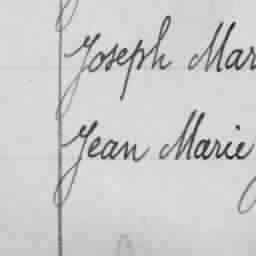 Joseph Mar
Jean Marie